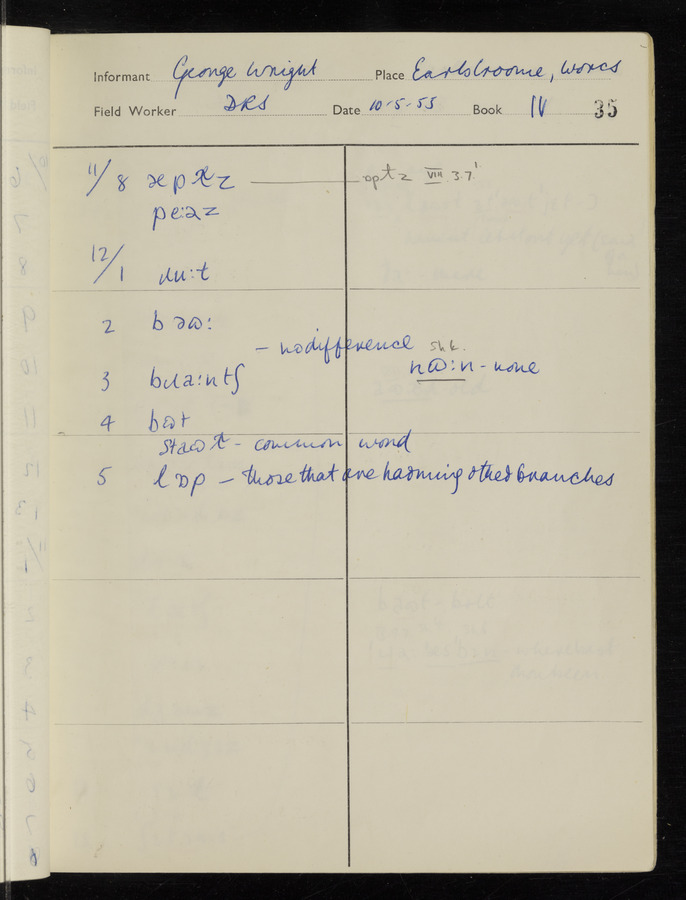 Informant George Wright Place Earls Croome, Worcs
Field Worker DRS Date 10-5-55 Book IV 35
11/8 æpɫz — apɫz VIII 3.7'
pɛ:əz
12/1 ɹu:t
2 bəɷ:
– no difference shk.
3 bɹa:ntʃ nɷ:n - none
4 bɷt
staɷɫ - common word
5 lɒp – those that are harming other branches